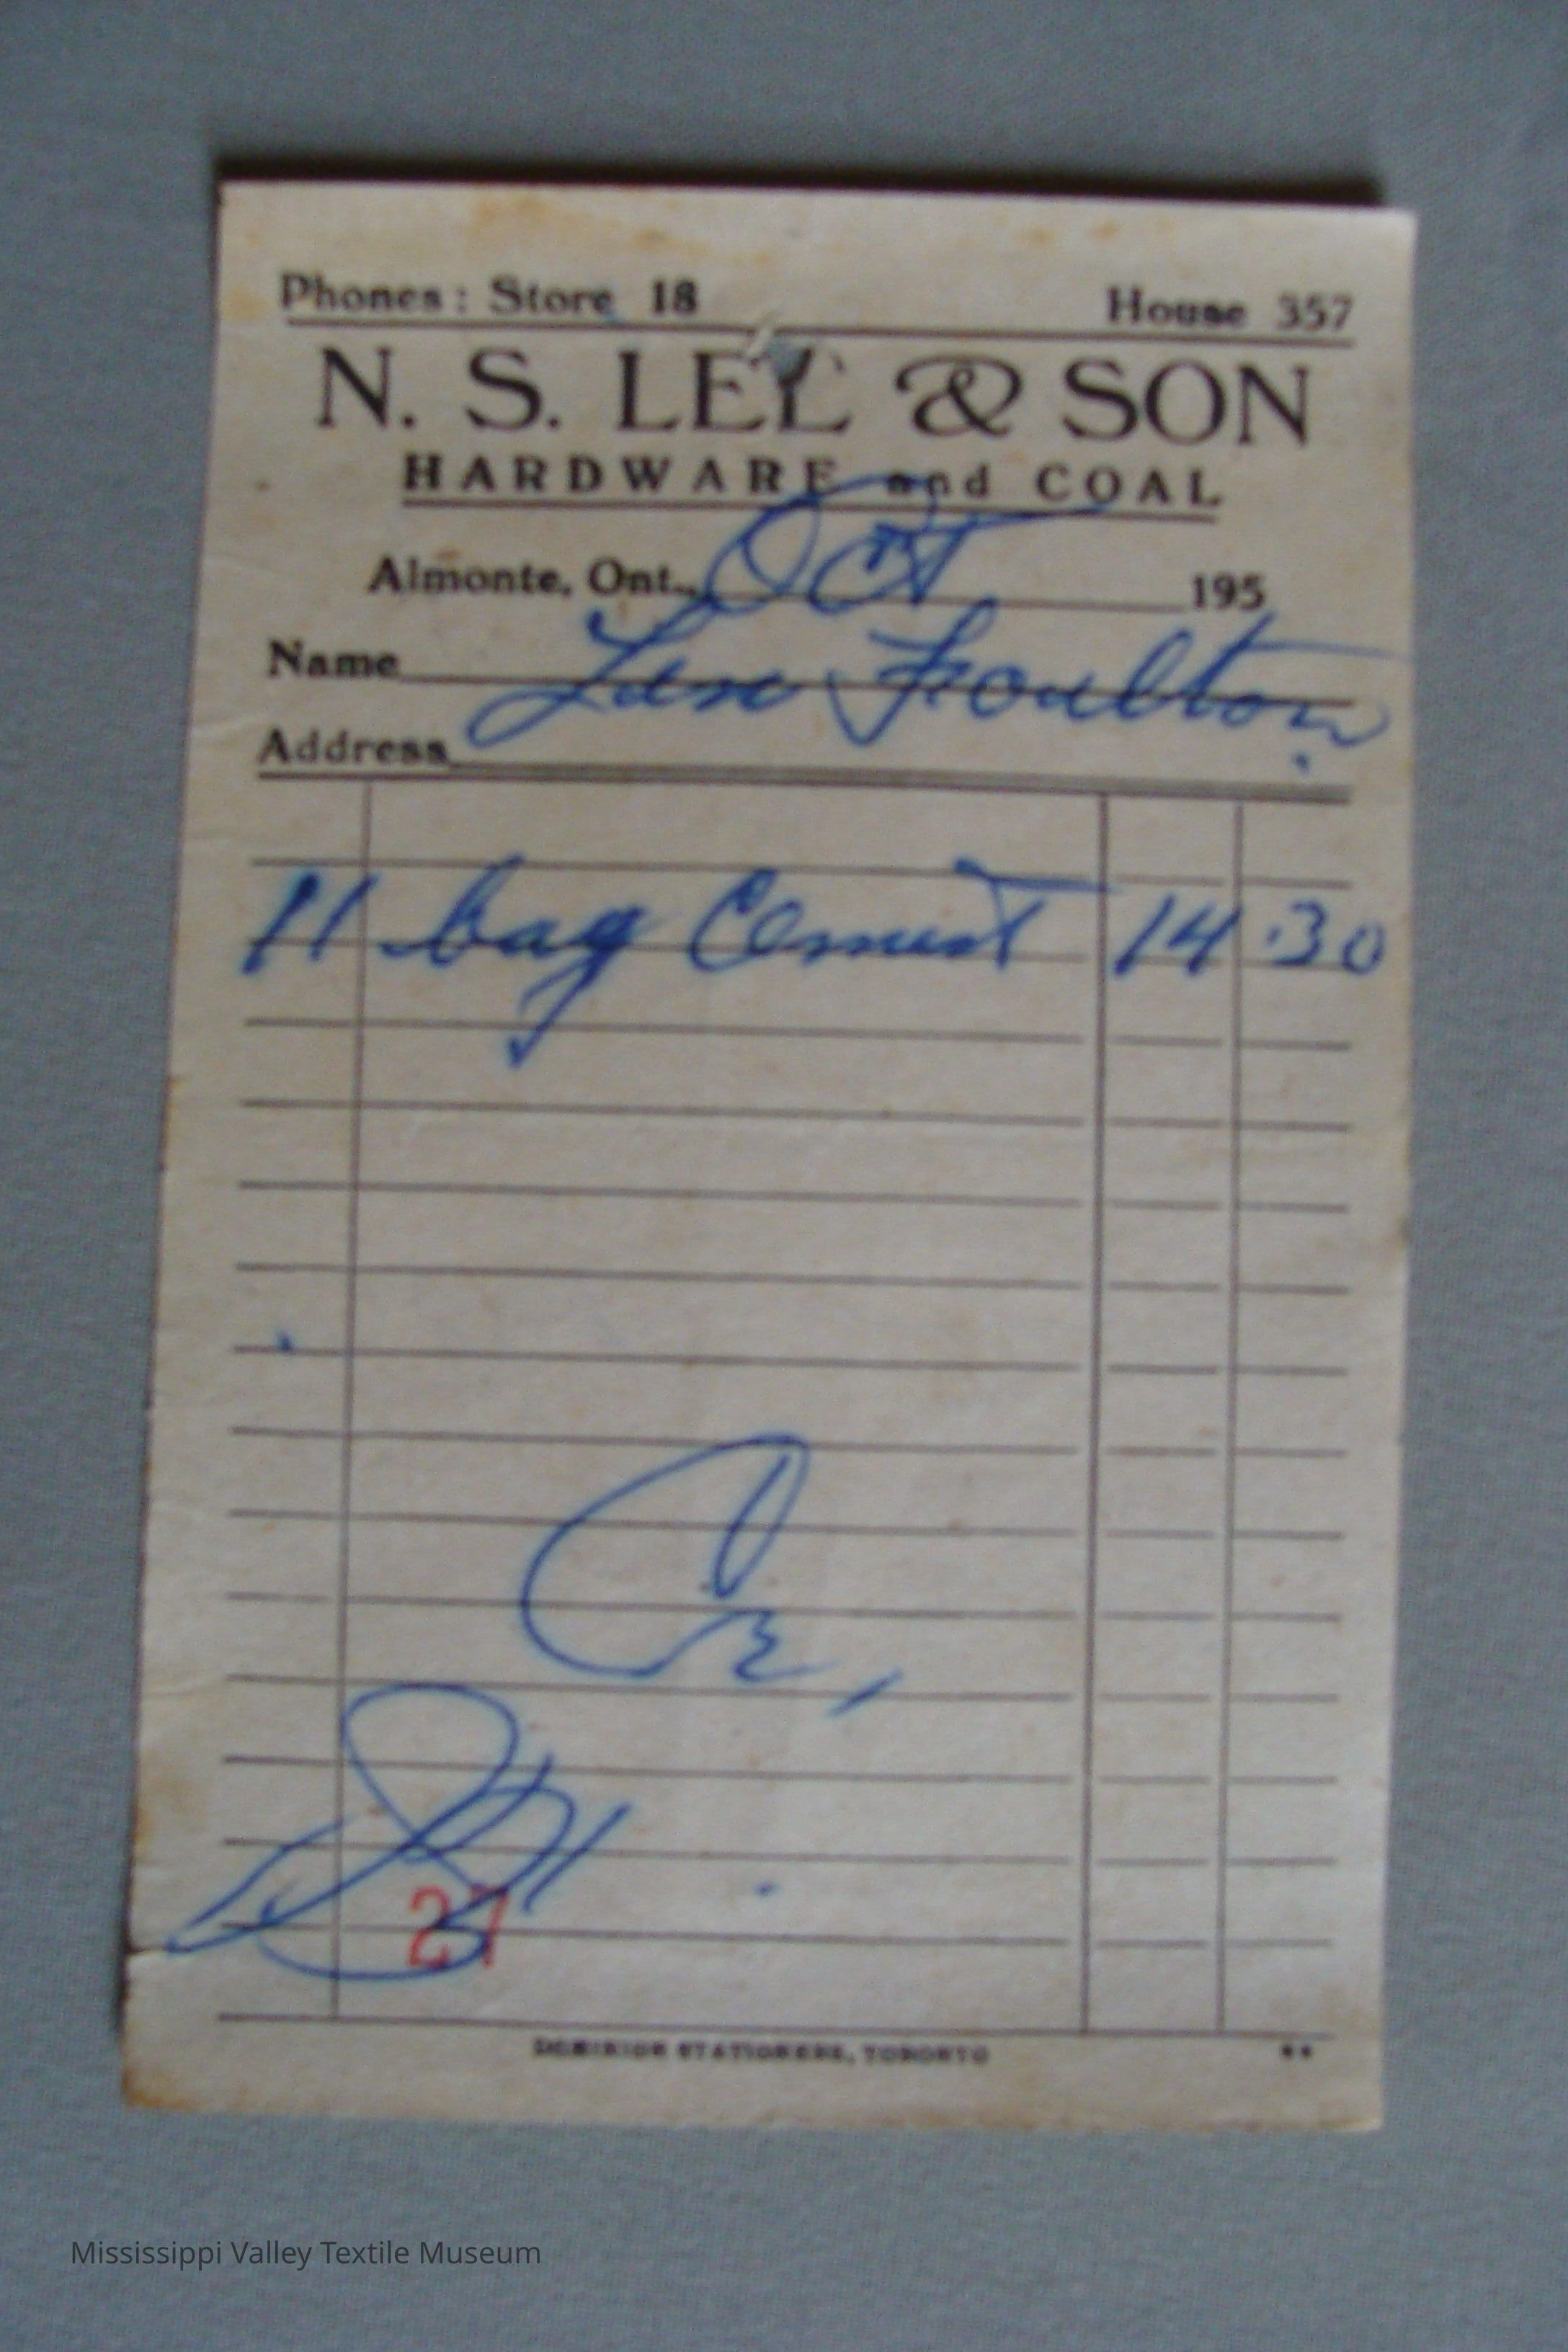 Phones: Store 18 House 357
N. S. LEE & SON
HARDWARE and COAL
Almonte, Ont. Oct 195
Name Len Foulton
Address
11 bag Cement 14.30
Cr,
27
DOMINION STATIONERS, TORONTO
Mississippi Valley Textile Museum